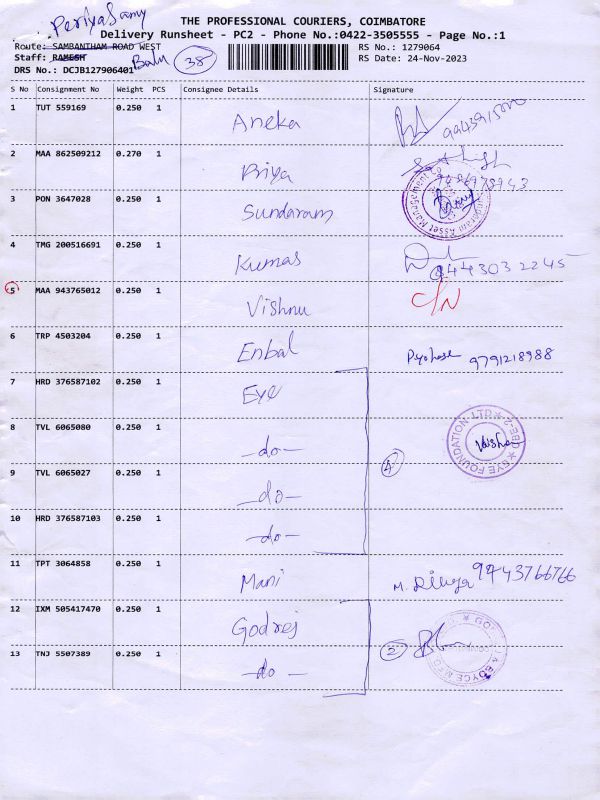 PeriyaSamy
THE PROFESSIONAL COURIERS, COIMBATORE
Delivery Runsheet - PC2 - Phone No.:0422-3505555 - Page No.:1
Route: SAMBANTHAM ROAD WEST
RS No.: 1279064
Staff: RAMESH Balu 38
RS Date: 24-Nov-2023
DRS No.: DCJB127906401
S No Consignment No Weight PCS Consignee Details Signature
1 TUT 559169 0.250 1 Aneka
2 MAA 862509212 0.270 1 Priya
3 PON 3647028 0.250 1 Sundaram
Asset Management
4 TMG 200516691 0.250 1 Kumas
5 MAA 943765012 0.250 1 Vishnu C/N
6 TRP 4503204 0.250 1 Enbal 9791218988
7 HRD 376587102 0.250 1 Eye
8 TVL 6065080 0.250 1 -do-
EYE FOUNDATION LTD
4
9 TVL 6065027 0.250 1 -do-
10 HRD 376587103 0.250 1 -do-
11 TPT 3064858 0.250 1 Mani M. Divya 9943766766
12 IXM 505417470 0.250 1 Godrej
2
13 TNJ 5507389 0.250 1 -do-